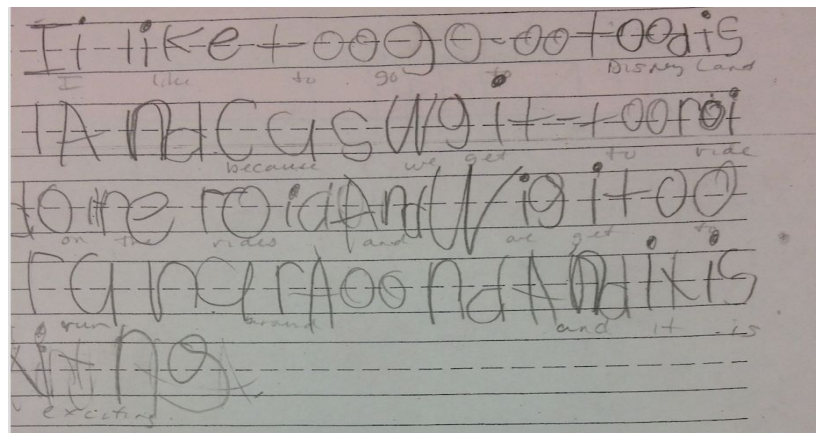 Ii like too go oo toodis
I like to go to Disney Land
IAnd CusWgit toonoi
because we get to ride
donne roidAndWigitoo
on the rides and we get to
ranarAoondAndixis
run around and it is
itng
exciting